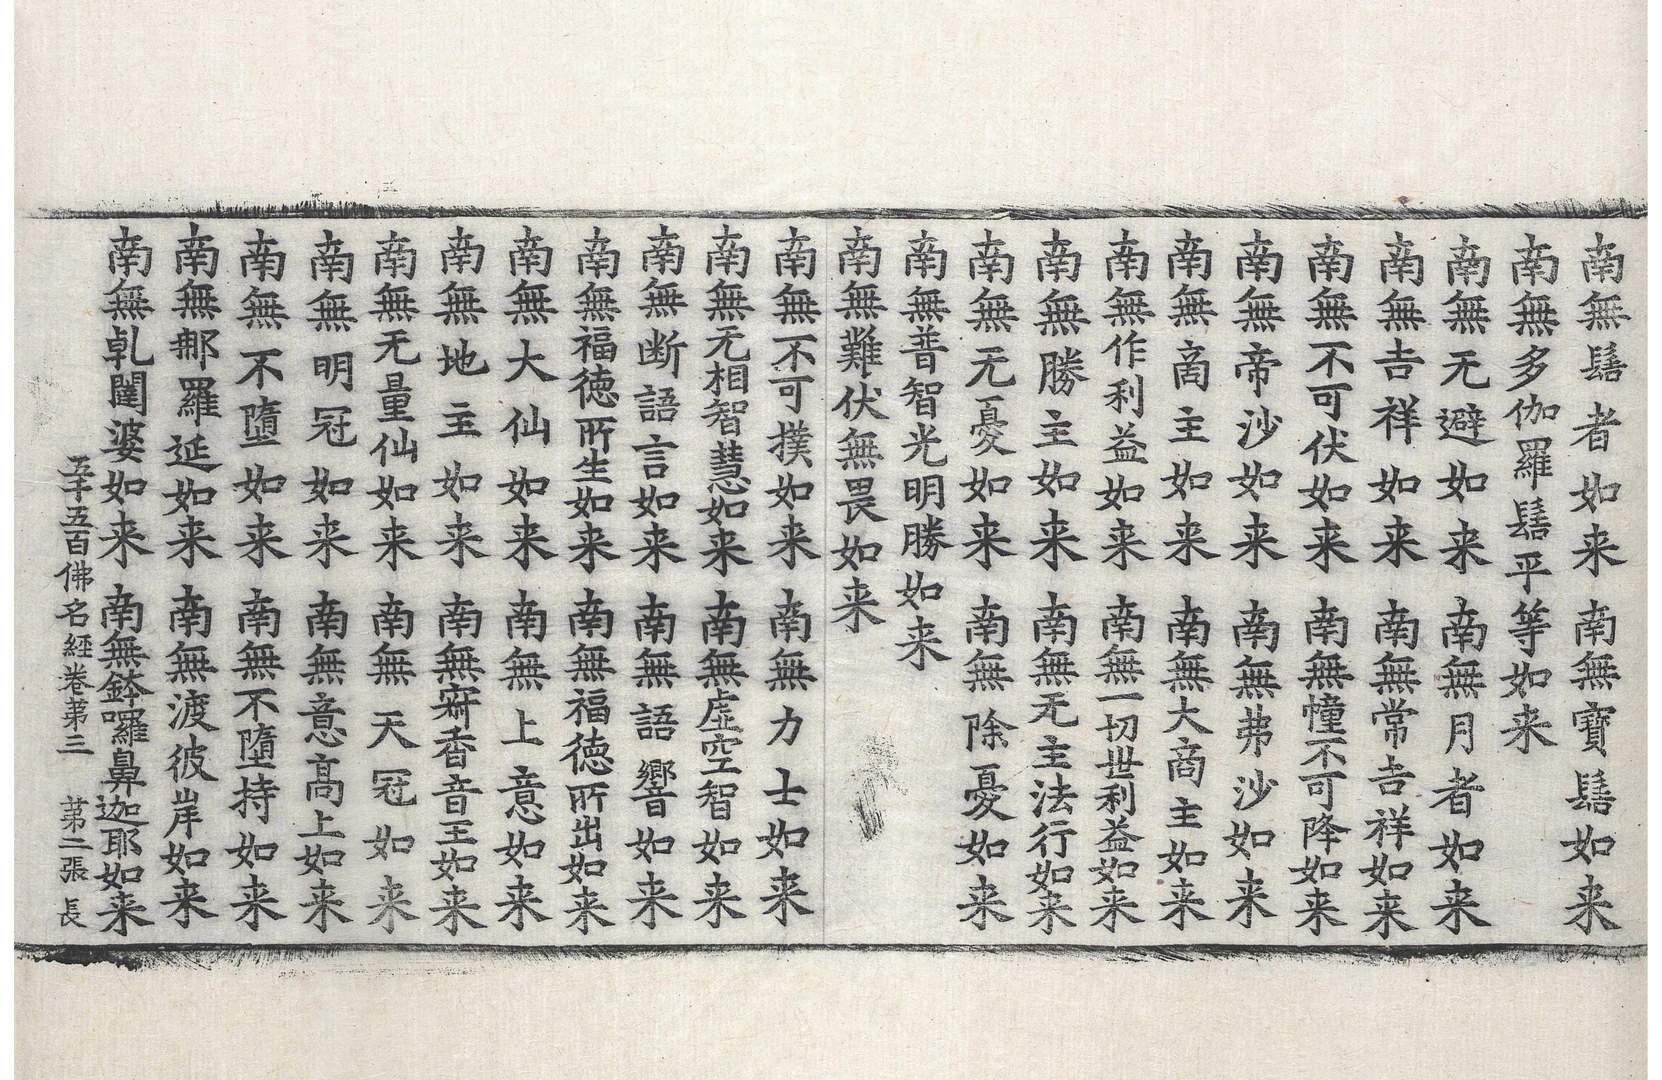 南無髻者如来 南無寶髻如来
南無多伽羅髻平等如来
南無无避如来 南無月者如来
南無吉祥如来 南無常吉祥如来
南無不可伏如来 南無幢不可降如来
南無帝沙如来 南無弗沙如来
南無商主如来 南無大商主如来
南無作利益如来 南無一切世利益如来
南無勝主如来 南無无主法行如来
南無无憂如来 南無除憂如来
南無普智光明勝如来
南無難伏無畏如来
南無不可撲如来 南無力士如来
南無无相智慧如来 南無虛空智如来
南無断語言如来 南無語響如来
南無福德所生如来 南無福德所出如来
南無大仙如来 南無上意如来
南無地主如来 南無香音王如来
南無无量仙如来 南無天冠如来
南無明冠如来 南無意高上如来
南無不墮如来 南無不墮持如来
南無那羅延如来 南無渡彼岸如来
南無乹闥婆如来 南無鉢囉鼻迦耶如来
五千五百佛名經卷第三 第二張 長